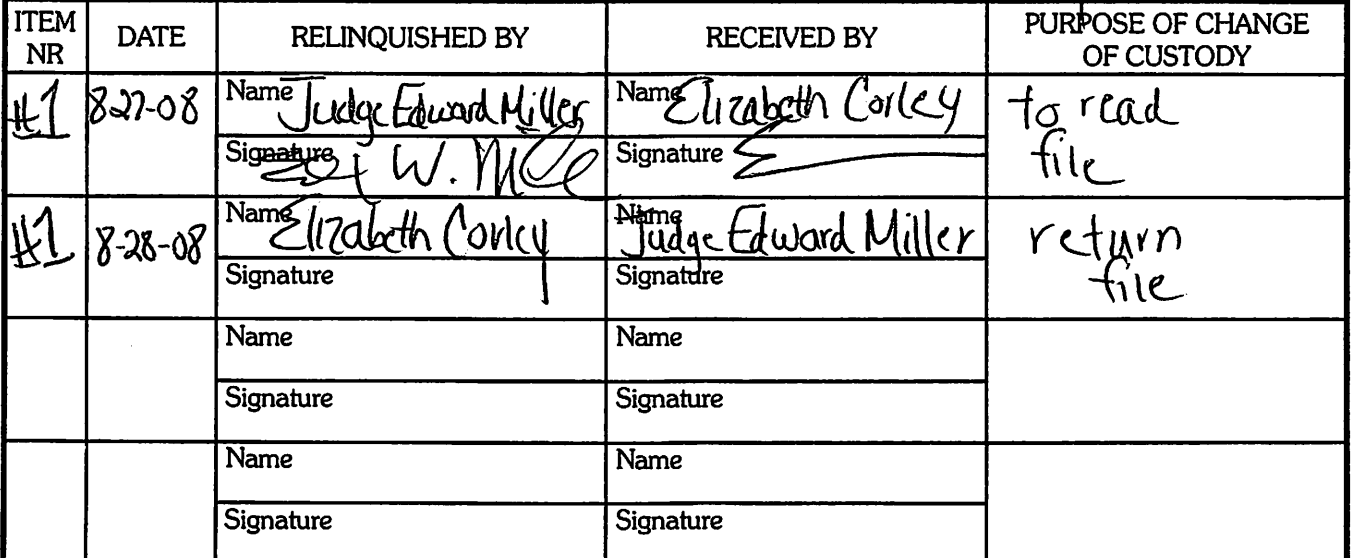 ITEM NR DATE RELINQUISHED BY RECEIVED BY PURPOSE OF CHANGE OF CUSTODY
#1 8-27-08 Name Judge Edward Miller Name Elizabeth Corley to read
Signature W. Signature file
#1 8-28-08 Name Elizabeth Corley Name Judge Edward Miller return
Signature Signature file
Name Name
Signature Signature
Name Name
Signature Signature